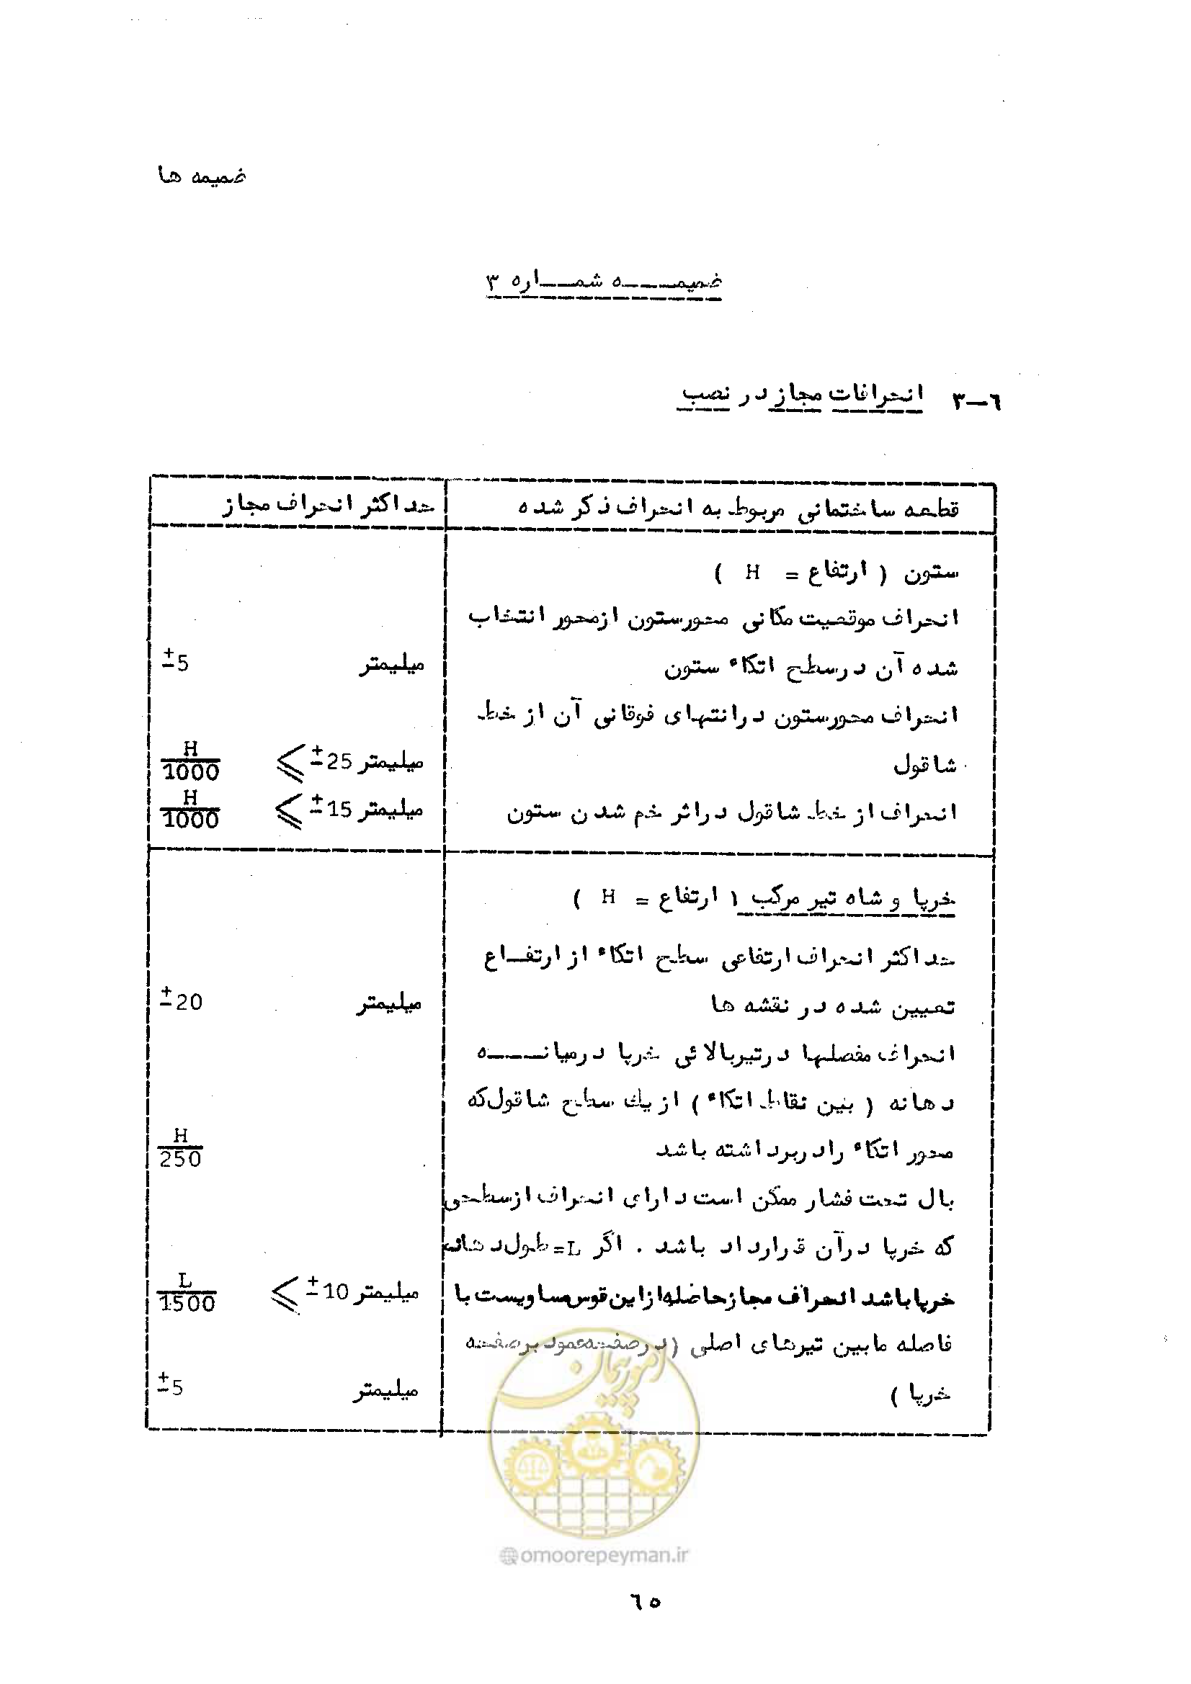 ضمیمه ها
ضمیمـــه شمـــاره ۳
۳-۶ انحرافات مجاز در نصب
قطعه ساختمانی مربوط به انحراف ذکر شده حداکثر انحراف مجاز
ستون ( ارتفاع = H )
انحراف موقعیت مکانی محورستون ازمحور انتخاب
شده آن درسطح اتکاء ستون میلیمتر ±5
انحراف محورستون درانتهای فوقانی آن از خط
شاقول میلیمتر ±25 ⩾ H/1000
انحراف از خط شاقول دراثر خم شدن ستون میلیمتر ±15 ⩾ H/1000
خرپا و شاه تیر مرکب ( ارتفاع = H )
حداکثر انحراف ارتفاعی سطح اتکاء از ارتفـاع
تعیین شده در نقشه ها میلیمتر ±20
انحراف مفصلها درتیربالائی خرپا درمیانـــه
دهانه ( بین نقاط اتکاء ) از یك سطح شاقول‌که
محور اتکاء رادربرداشته باشد H/250
بال تحت فشار ممکن است دارای انحراف ازسطحی
که خرپا درآن قرارداد باشد . اگر L=طول‌دهانه
خرپاباشد انحراف مجازحاصله‌ازاین‌قوس‌مساویست با میلیمتر ±10 ⩾ L/1500
فاصله مابین تیرهای اصلی (درصفحه‌عمود برصفحه
خرپا ) میلیمتر ±5
امور پیمان
@omoorepeyman.ir
٦٥